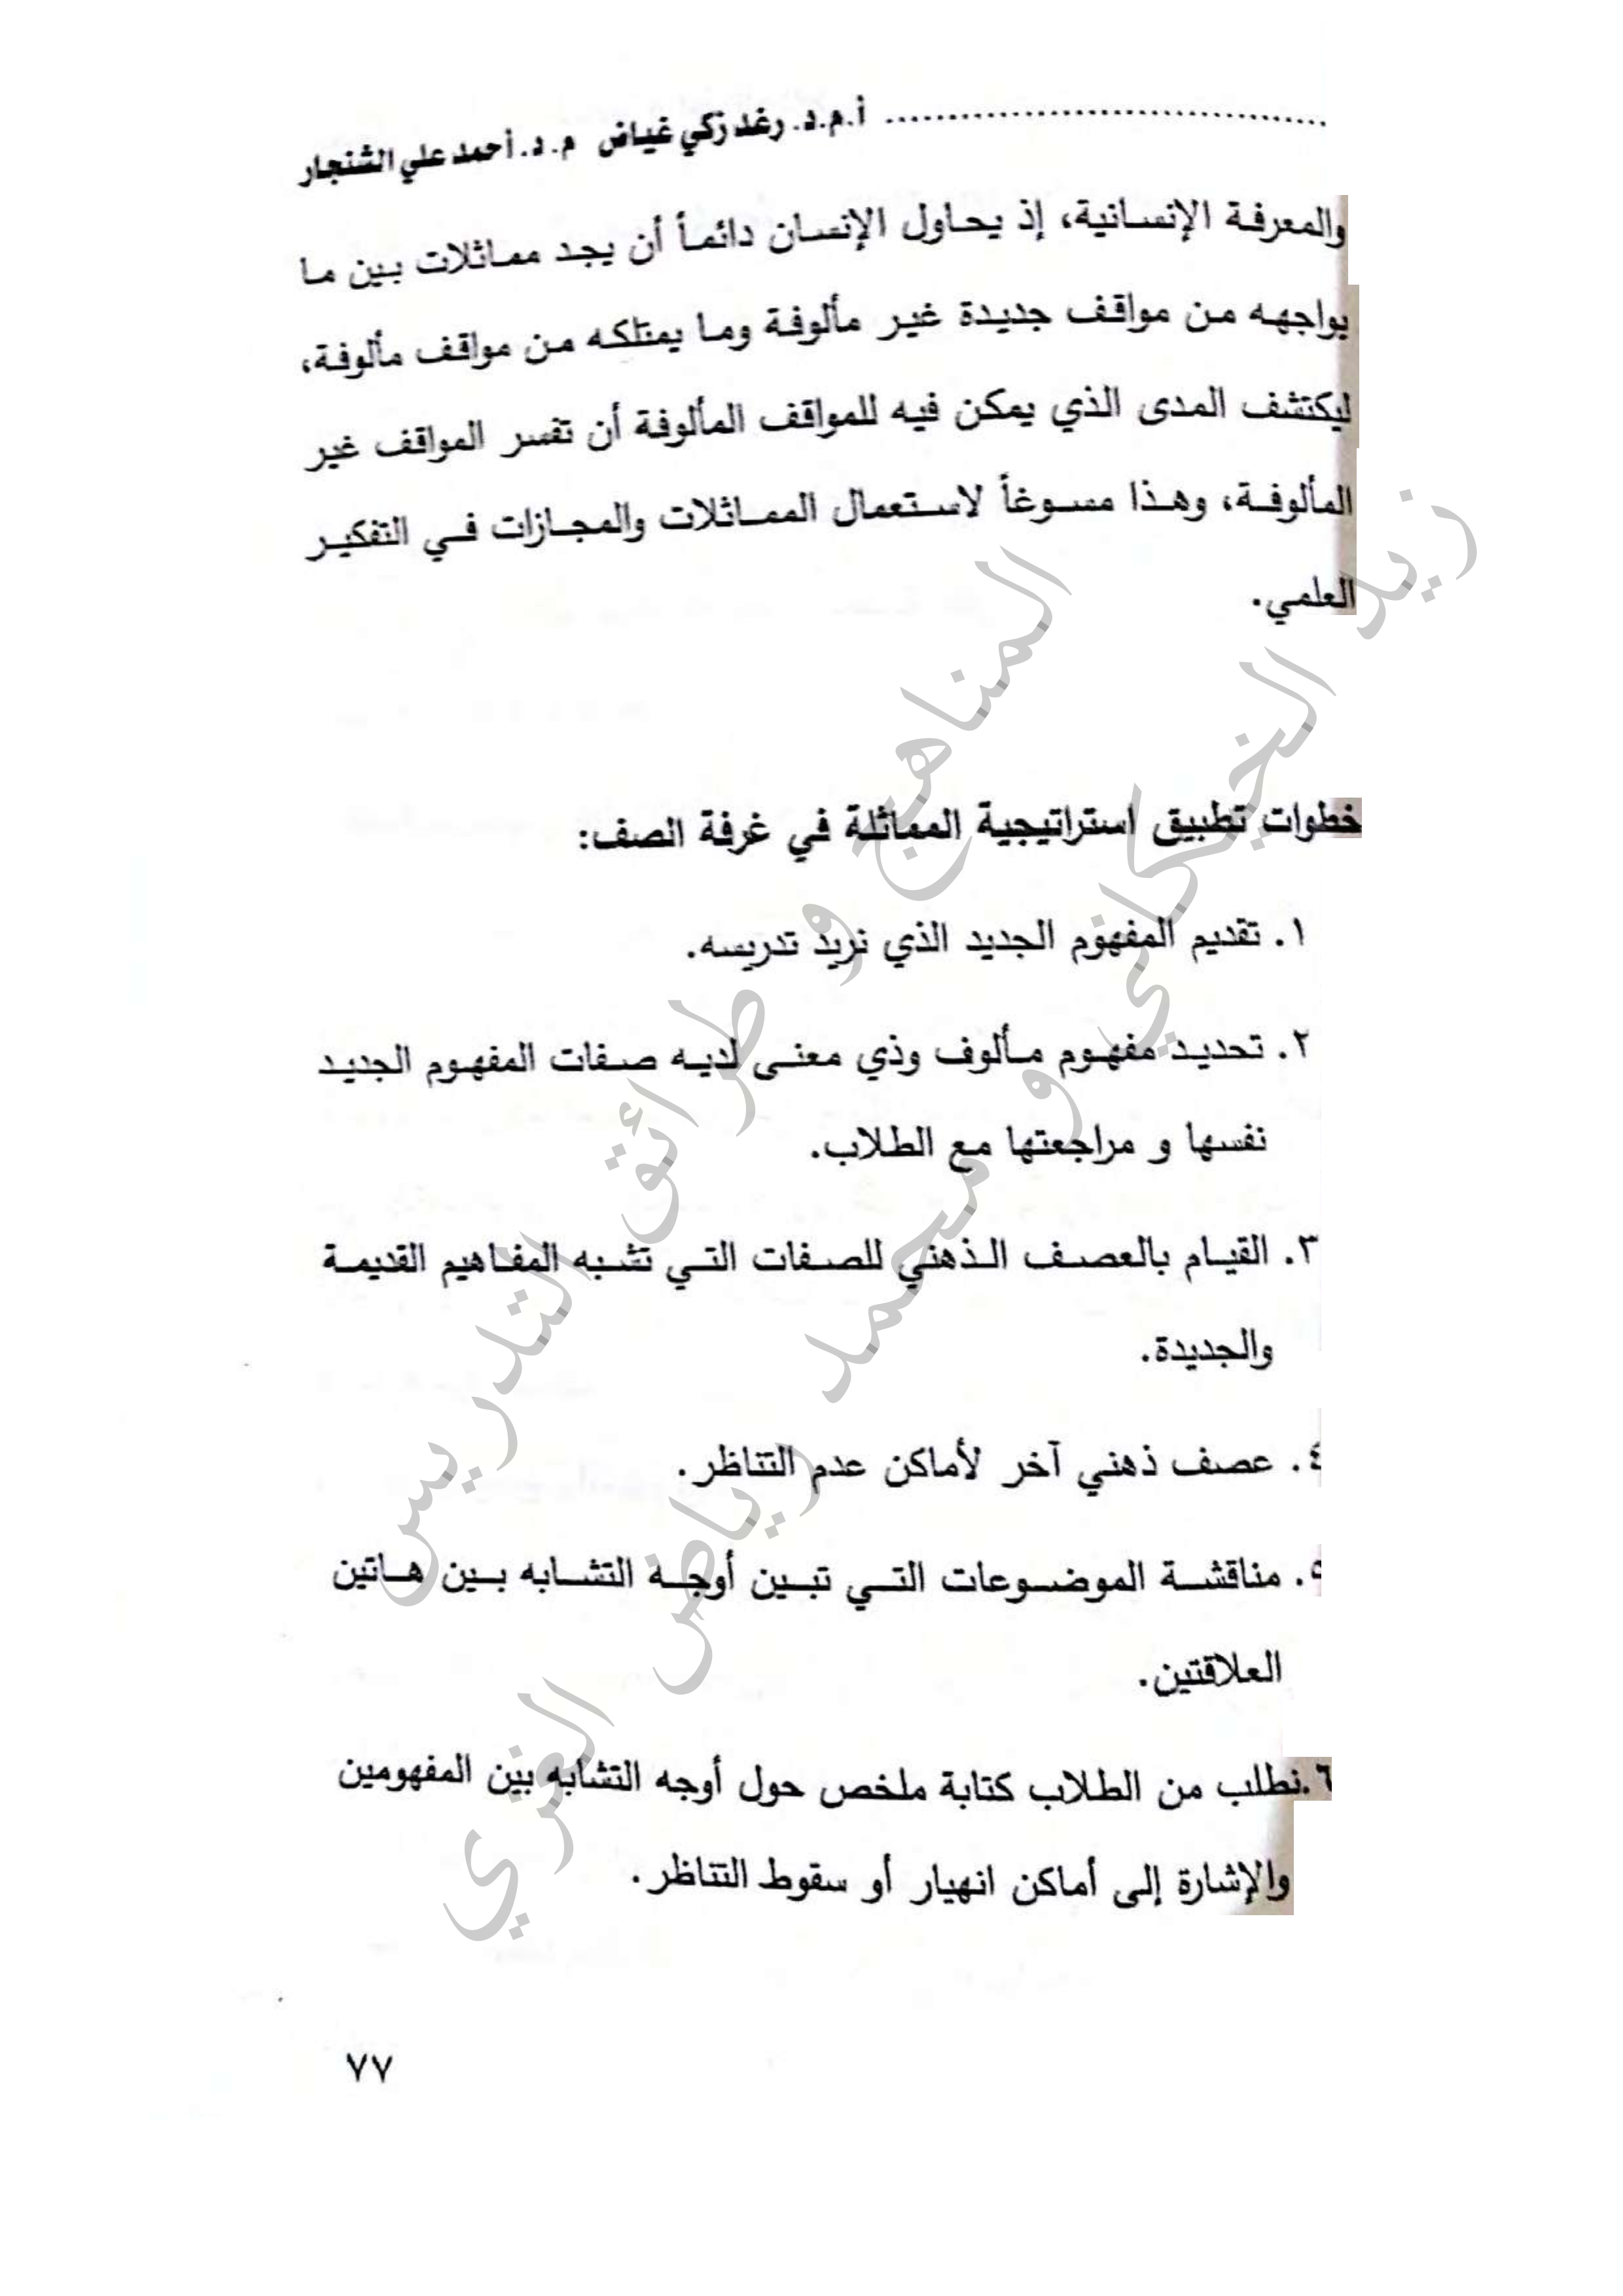 أ.م.د. رغد زكي غياض م.د. أحمد علي الشنجار
والمعرفة الإنسانية، إذ يحاول الإنسان دائماً أن يجد مماثلات بين ما
يواجهه من مواقف جديدة غير مألوفة وما يمتلكه من مواقف مألوفة،
ليكتشف المدى الذي يمكن فيه للمواقف المألوفة أن تفسر المواقف غير
المألوفة، وهذا مسوغاً لاستعمال المماثلات والمجازات في التفكير
العلمي.
خطوات تطبيق استراتيجية المماثلة في غرفة الصف:
١. تقديم المفهوم الجديد الذي نريد تدريسه.
٢. تحديد مفهوم مألوف وذي معنى لديه صفات المفهوم الجديد
نفسها و مراجعتها مع الطلاب.
٣. القيام بالعصف الذهني للصفات التي تشبه المفاهيم القديمة
والجديدة.
٤. عصف ذهني آخر لأماكن عدم التناظر.
٥. مناقشة الموضوعات التي تبين أوجه التشابه بين هاتين
العلاقتين.
٦.نطلب من الطلاب كتابة ملخص حول أوجه التشابه بين المفهومين
والإشارة إلى أماكن انهيار أو سقوط التناظر.
٧٧
المناهج و طرائق التدريس
زيد الخيكاني و محمد رياض الغزي